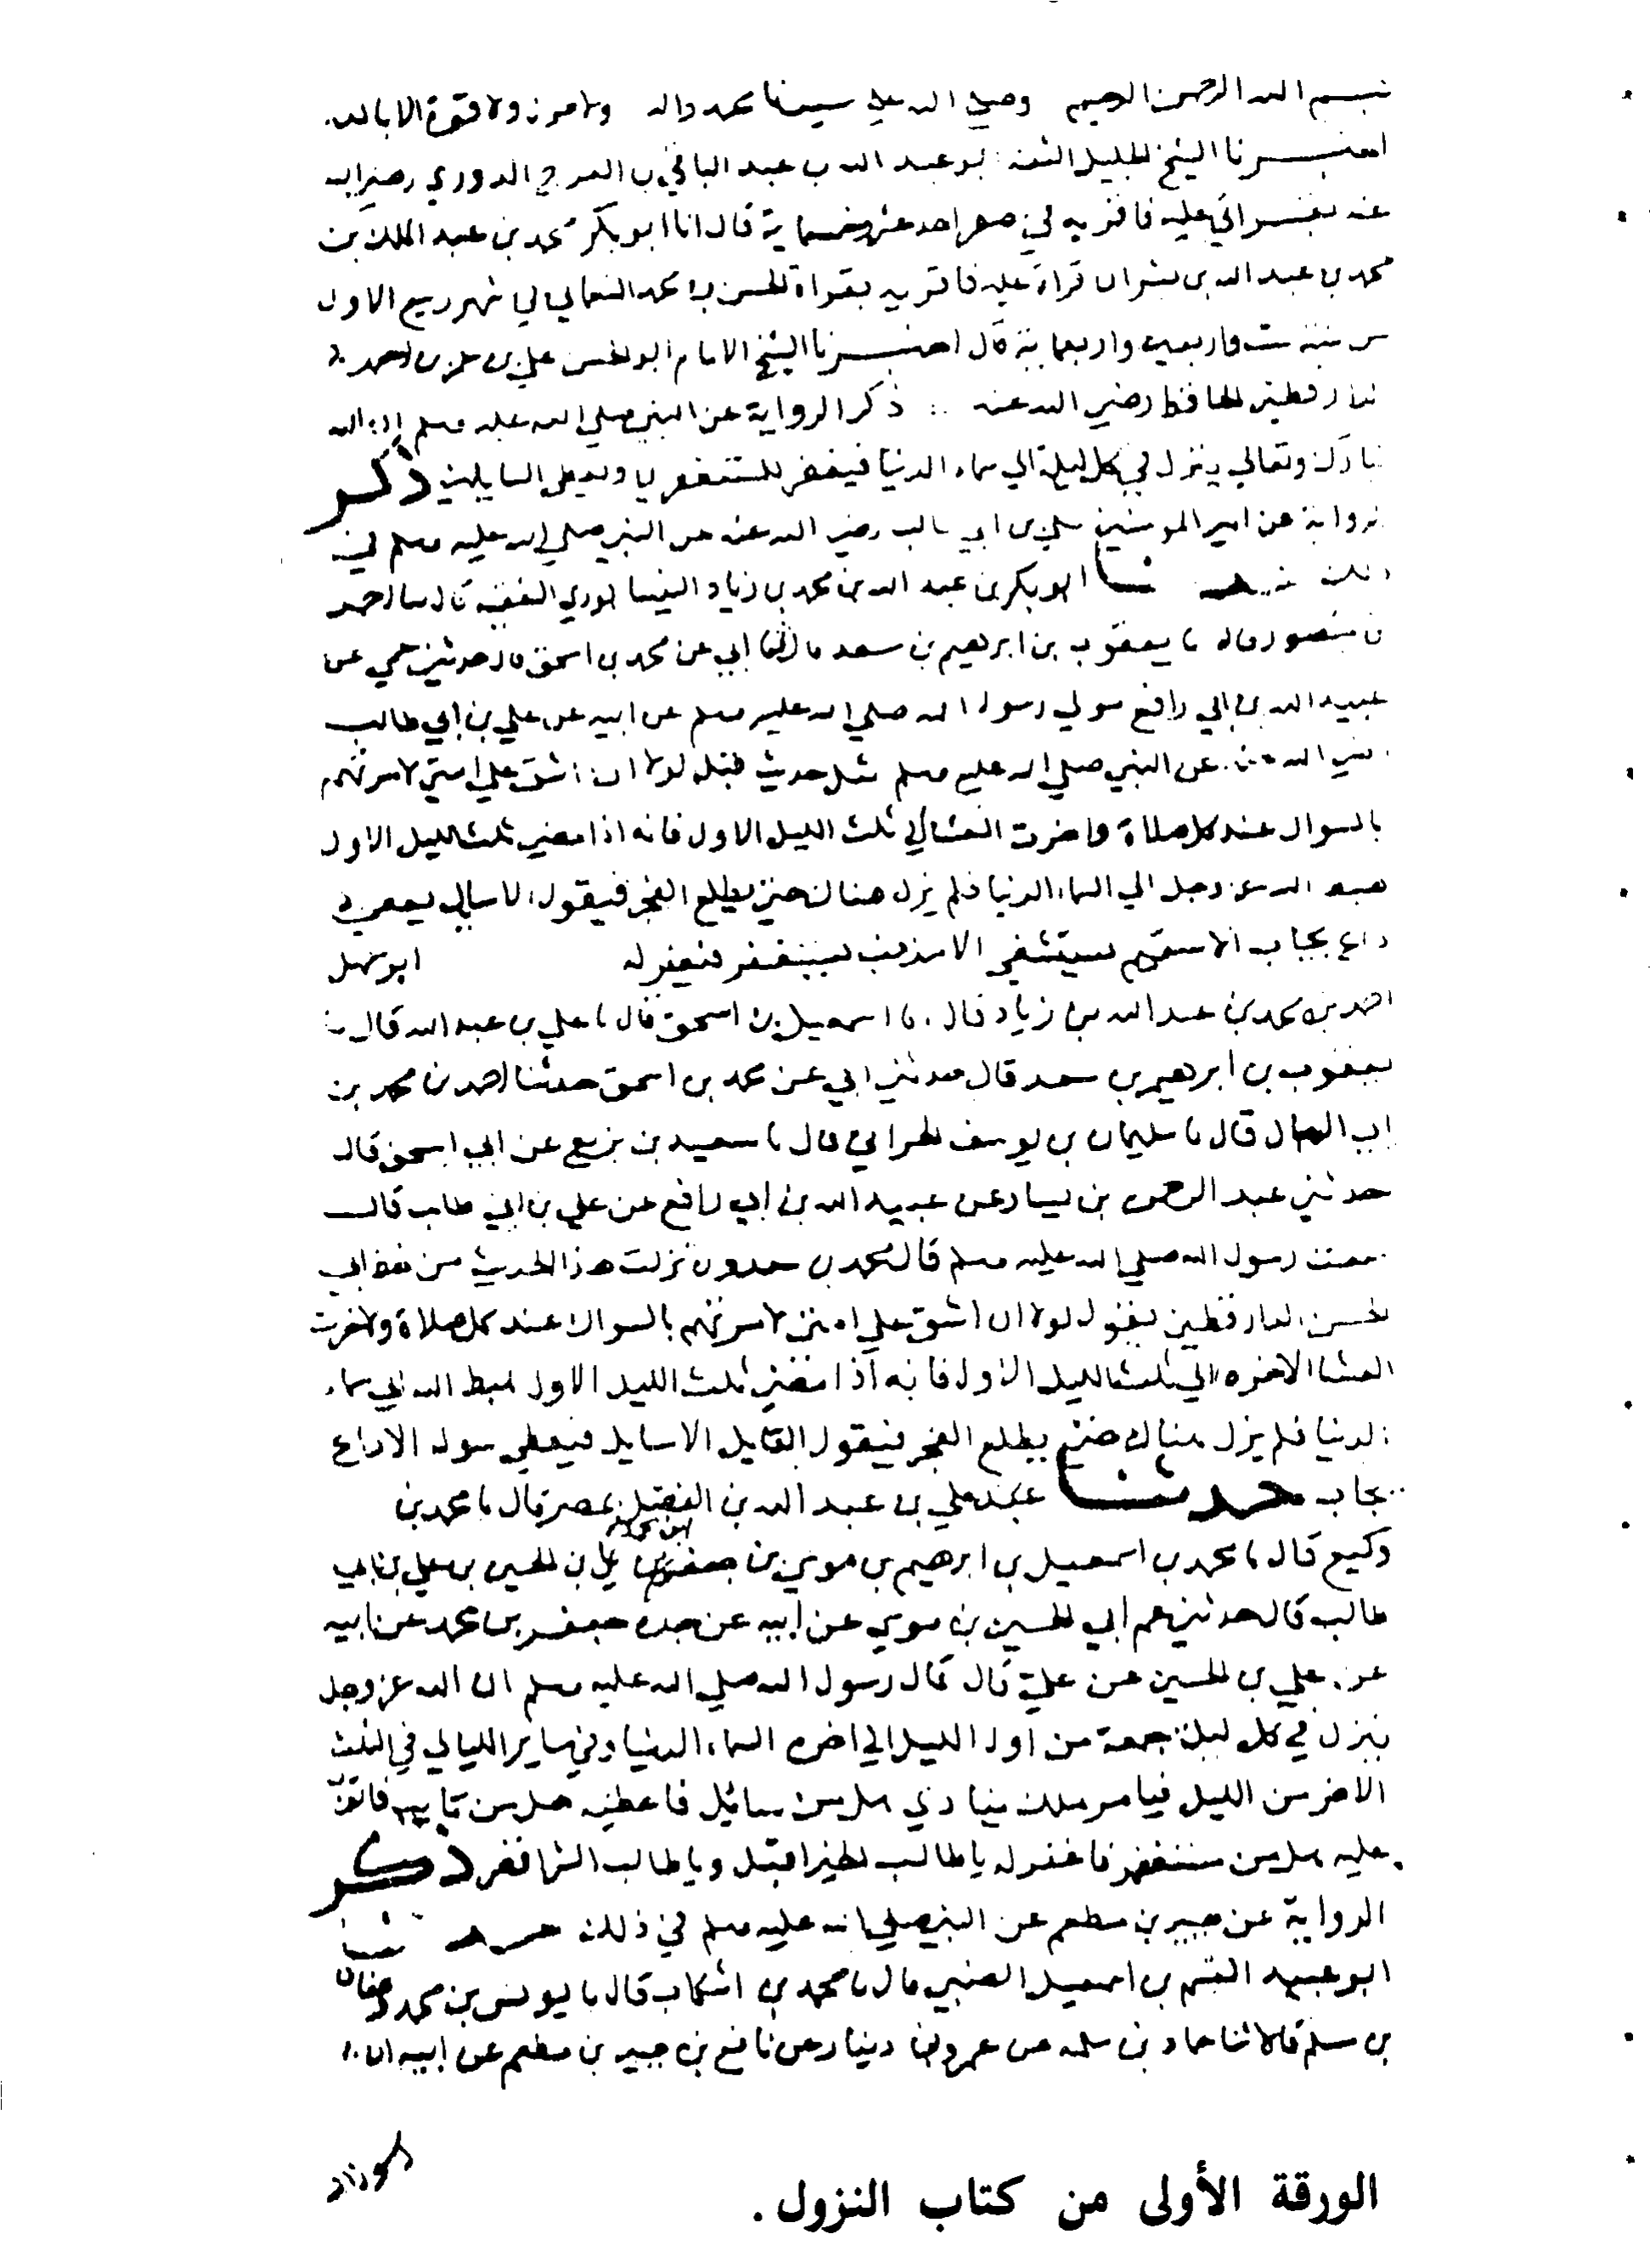 بسم الله الرحمن الرحيم وصلى الله على سيدنا محمد واله ولا حول ولا قوة الا بالله
اخبرنا الشيخ الجليل الثقة ابو عبد الله بن عبد الباقي بن الفرج الدوري رضي الله
عنه بقراتي عليه فاقر به في صفر احد عشر وخمسماية قال انا ابو بكر محمد بن عبد الملك بن
محمد بن عبد الله بن بشران قراة عليه فاقر به بقراة الحسن بن محمد النعالي في شهر ربيع الاول
من سنة ست واربعين واربعماية قال اخبرنا الشيخ الامام ابو الحسن علي بن عمر بن احمد
الدارقطني الحافظ رضي الله عنه ذكر الرواية عن النبي صلى الله عليه وسلم ان الله
تبارك وتعالى ينزل في كل ليلة الى سماء الدنيا فيغفر للمستغفرين ويعطي السايلين ذكر
الرواية عن امير المومنين علي بن ابي طالب رضي الله عنه عن النبي صلى الله عليه وسلم في
ذلك حدثنا ابو بكر بن عبد الله بن محمد بن زياد النيسابوري الفقيه قال نا احمد
بن منصور قال نا يعقوب بن ابرهيم بن سعد قال نا ابي عن محمد بن اسحق قال حدثني عمي عن
عبيد الله بن ابي رافع مولى رسول الله صلى الله عليه وسلم عن ابيه عن علي بن ابي طالب
رضي الله عنه عن النبي صلى الله عليه وسلم مثل حديث قبله لولا ان اشق على امتي لامرتهم
بالسواك عند كل صلاة واخرت العشا الى ثلث الليل الاول فانه اذا مضى ثلث الليل الاول
هبط الله عز وجل الى السماء الدنيا فلم يزل هنالك حتى يطلع الفجر فيقول الا سايل يعطى
داع يجاب الا سقيم يستشفي الا مذنب يستغفر فيغفر له ابو سهل
احمد بن محمد بن عبد الله بن زياد قال نا اسمعيل بن اسحق قال نا علي بن عبد الله قال نا
يعقوب بن ابرهيم بن سعد قال حدثني ابي عن محمد بن اسحق حدثنا احمد بن محمد بن
ابي قال نا سليمان بن يوسف الحراني قال نا سعيد بن بزيع عن ابي اسحق قال
حدثني عبد الرحمن بن يسار عن عبيد الله بن ابي رافع عن علي بن ابي طالب قال
سمعت رسول الله صلى الله عليه وسلم قال محمد بن حمدون نزلت هذا الحديث من لفظ ابي
الحسن الدارقطني يقول لولا ان اشق على امتي لامرتهم بالسواك عند كل صلاة ولاخرت
العشا الاخره الى ثلث الليل الاول فانه اذا مضى ثلث الليل الاول هبط الله الى سماء
الدنيا فلم يزل هنالك حتى يطلع الفجر فيقول القايل الا سايل فيعطى سوله الا داع
يجاب حدثنا علي بن عبد الله بن الفضل بمصر قال نا محمد بن
وكيع قال نا محمد بن اسمعيل بن ابرهيم بن موسى بن جعفر بن محمد بن علي بن الحسين بن علي بن ابي
طالب قال حدثني عم ابي الحسين بن موسى عن ابيه عن جده جعفر بن محمد عن ابيه
عن علي بن الحسين عن علي قال قال رسول الله صلى الله عليه وسلم ان الله عز وجل
ينزل في كل ليلة جمعة من اول الليل الى اخره السماء الدنيا وفي ساير الليالي في الثلث
الاخر من الليل فيامر ملك ينادي هل من سائل فاعطيه هل من تايب فاتوب
عليه هل من مستغفر فاغفر له يا طالب الخير اقبل ويا طالب الشر اقصر ذكر
الرواية عن جبير بن مطعم عن النبي صلى الله عليه وسلم في ذلك حدثنا
ابو عبيد القسم بن اسمعيل الضبي قال نا محمد بن اشكاب قال نا يونس بن محمد وعفان
بن مسلم قالا ثنا حماد بن سلمه عن عمرو بن دينار عن نافع بن جبير بن مطعم عن ابيه ان
الورقة الأولى من كتاب النزول .